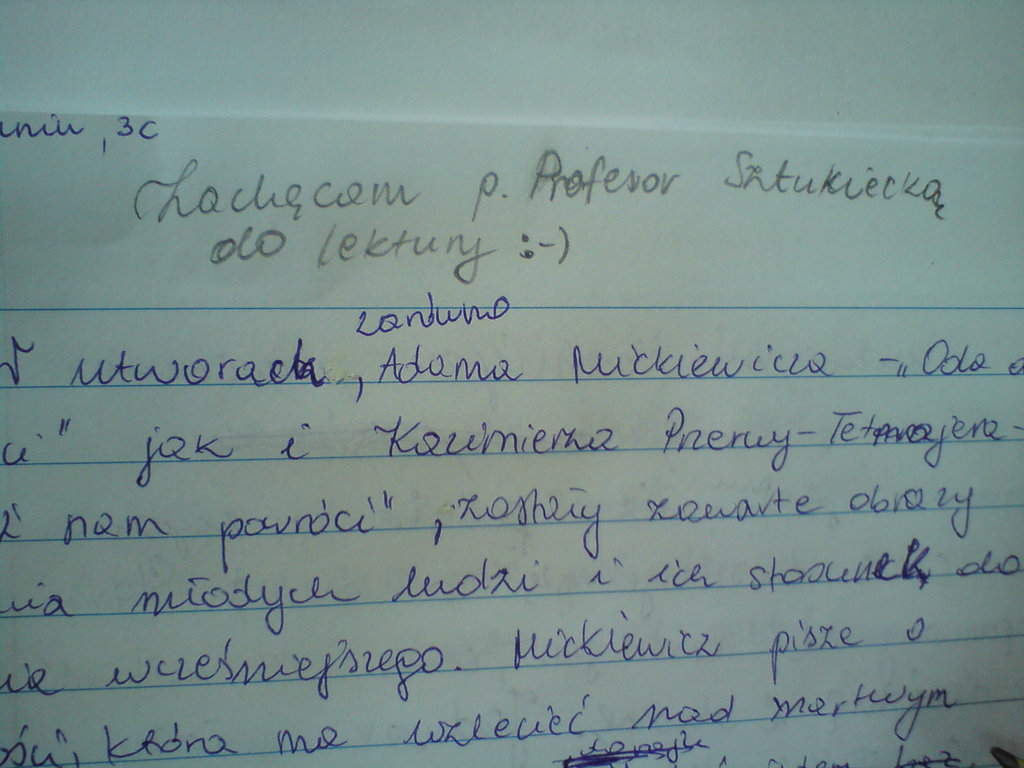 , 3c
Zachęcam p. Profesor Sztukiecką
do lektury :-)
zarówno
W utworach, Adama Mickiewicza - „Oda
ci" jak i Kazimierza Przerwy-Tetmajera -
nam powróci", zostały zawarte obrazy
nia młodych ludzi i ich stosunek do
nia wcześniejszego. Mickiewicz pisze o
ości, która ma wzlecieć nad martwym